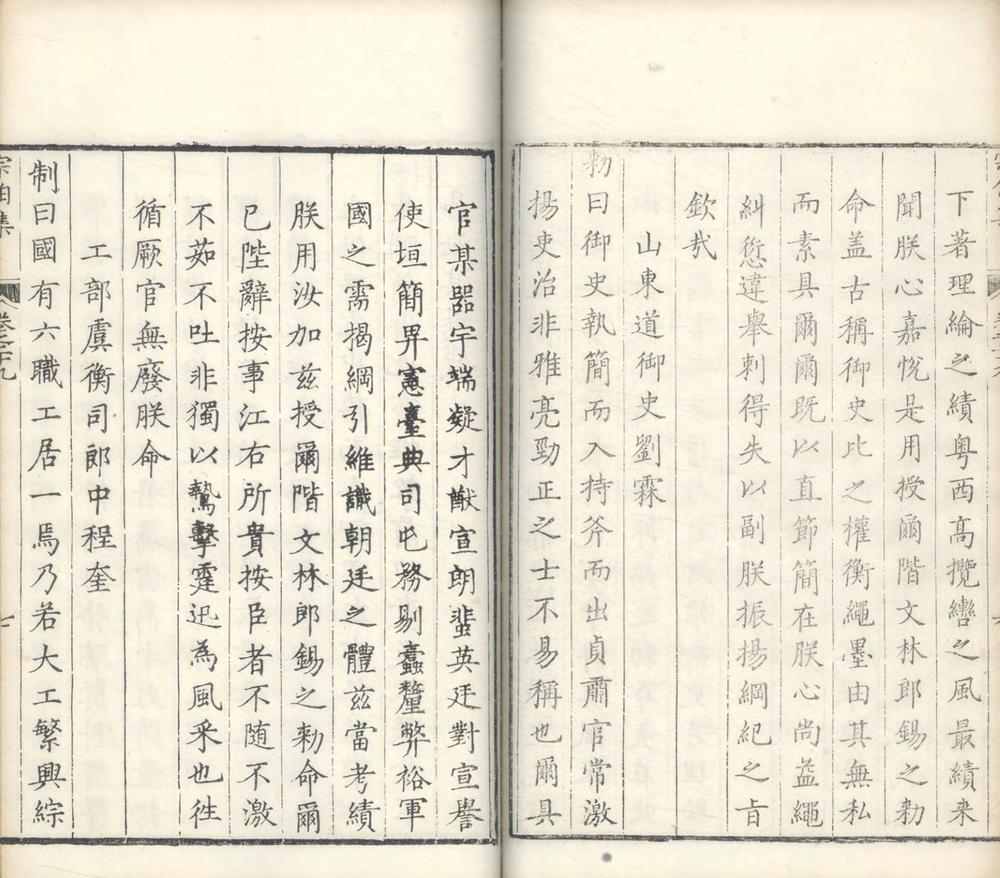 下著理綸之績粤西高攬轡之風最績来
聞朕心嘉悅是用授爾階文林郎錫之勑
命盖古稱御史比之權衡繩墨由其無私
而素具爾爾既以直節簡在朕心尚益繩
糾愆違舉刺得失以副朕振揚綱紀之㫖
欽㢤
山東道御史劉霖
勑曰御史執簡而入持斧而出貞肅官常激
揚吏治非雅亮勁正之士不易稱也爾具
官某器宇端凝才猷宣朗蜚英廷對宣譽
使垣簡畀憲臺典司屯務剔蠹釐弊裕軍
國之需揭綱引維識朝廷之體茲當考績
朕用汝加茲授爾階文林郎錫之勑命爾
已陛辭按事江右所貴按臣者不随不激
不茹不吐非獨以鷙擊霆迅為風采也徃
循厥官無廢朕命
工部虞衡司郎中程奎
制曰國有六職工居一焉乃若大工繁興綜
宗伯集
卷之十九
七